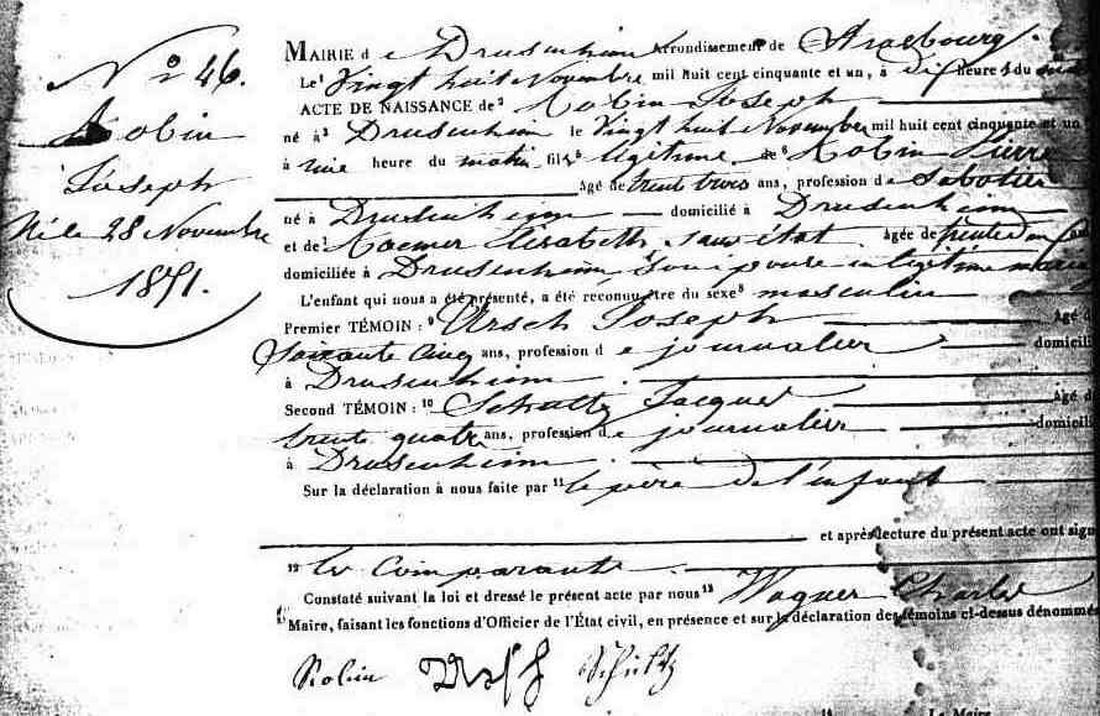 N° 46.
Robin
Joseph
Né le 28 Novembre
1851.
MAIRIE de Drusenheim Arrondissement de Strasbourg.
Le¹ Vingt huit Novembre mil huit cent cinquante et un, à dix heures du matin
ACTE DE NAISSANCE de² Robin Joseph
né à³ Drusenheim le Vingt huit Novembre mil huit cent cinquante et un
à une heure du matin fils⁵ légitime de⁶ Robin Pierre
Agé de trente trois ans, profession de Sabotier
né à Drusenheim domicilié à Drusenheim
et de⁷ Roemer Elisabeth, sans état Agée de trente
domiciliée à Drusenheim son épouse en légitime mariage
L'enfant qui nous a été présenté, a été reconnu être du sexe⁸ masculin
Premier TÉMOIN :⁹ Ursch Joseph Agé d
Soixante cinq ans, profession de journalier domicili
à Drusenheim.
Second TÉMOIN :¹⁰ Schultz Jacques Agé d
trente quatre ans, profession de journalier domicili
à Drusenheim
Sur la déclaration à nous faite par¹¹ le père de l'enfant
et après lecture du présent acte ont sign
¹² les Comparants.
Constaté suivant la loi et dressé le présent acte par nous¹³ Wagner Charles
Maire, faisant les fonctions d'Officier de l'État civil, en présence et sur la déclaration des témoins ci-dessus dénommés
Robin Ursch Schultz
Le Maire